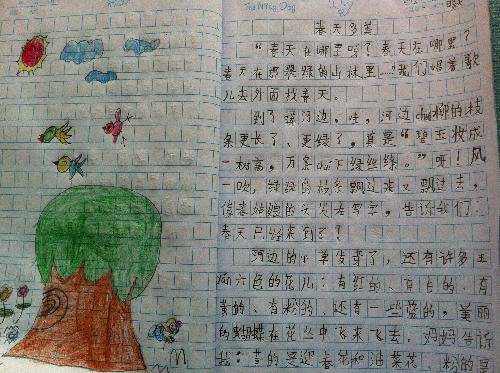 The Antic Dog
春天多美
“春天在哪里呀？春天在哪里？
春天在那翠绿的山林里…”我们唱着歌
儿去外面找春天。
到了碟河边，哇，河边 柳的枝
条更长了、更绿了，真是“碧玉妆成
一树高，万条 下绿丝绦。”呀！风
一吹，绿绿的 条飘过来又飘过去，
像春姑娘的 在写字，告诉我们：
春天已经来到了？
河边的小草发芽了，还有许多五
颜六色的花儿：有红的、有白的、有
黄的、有粉的、还有一些蓝的，美丽
的蝴蝶在花丛中飞来飞去，妈妈告诉
我：黄的是迎春花和油菜花、粉的是